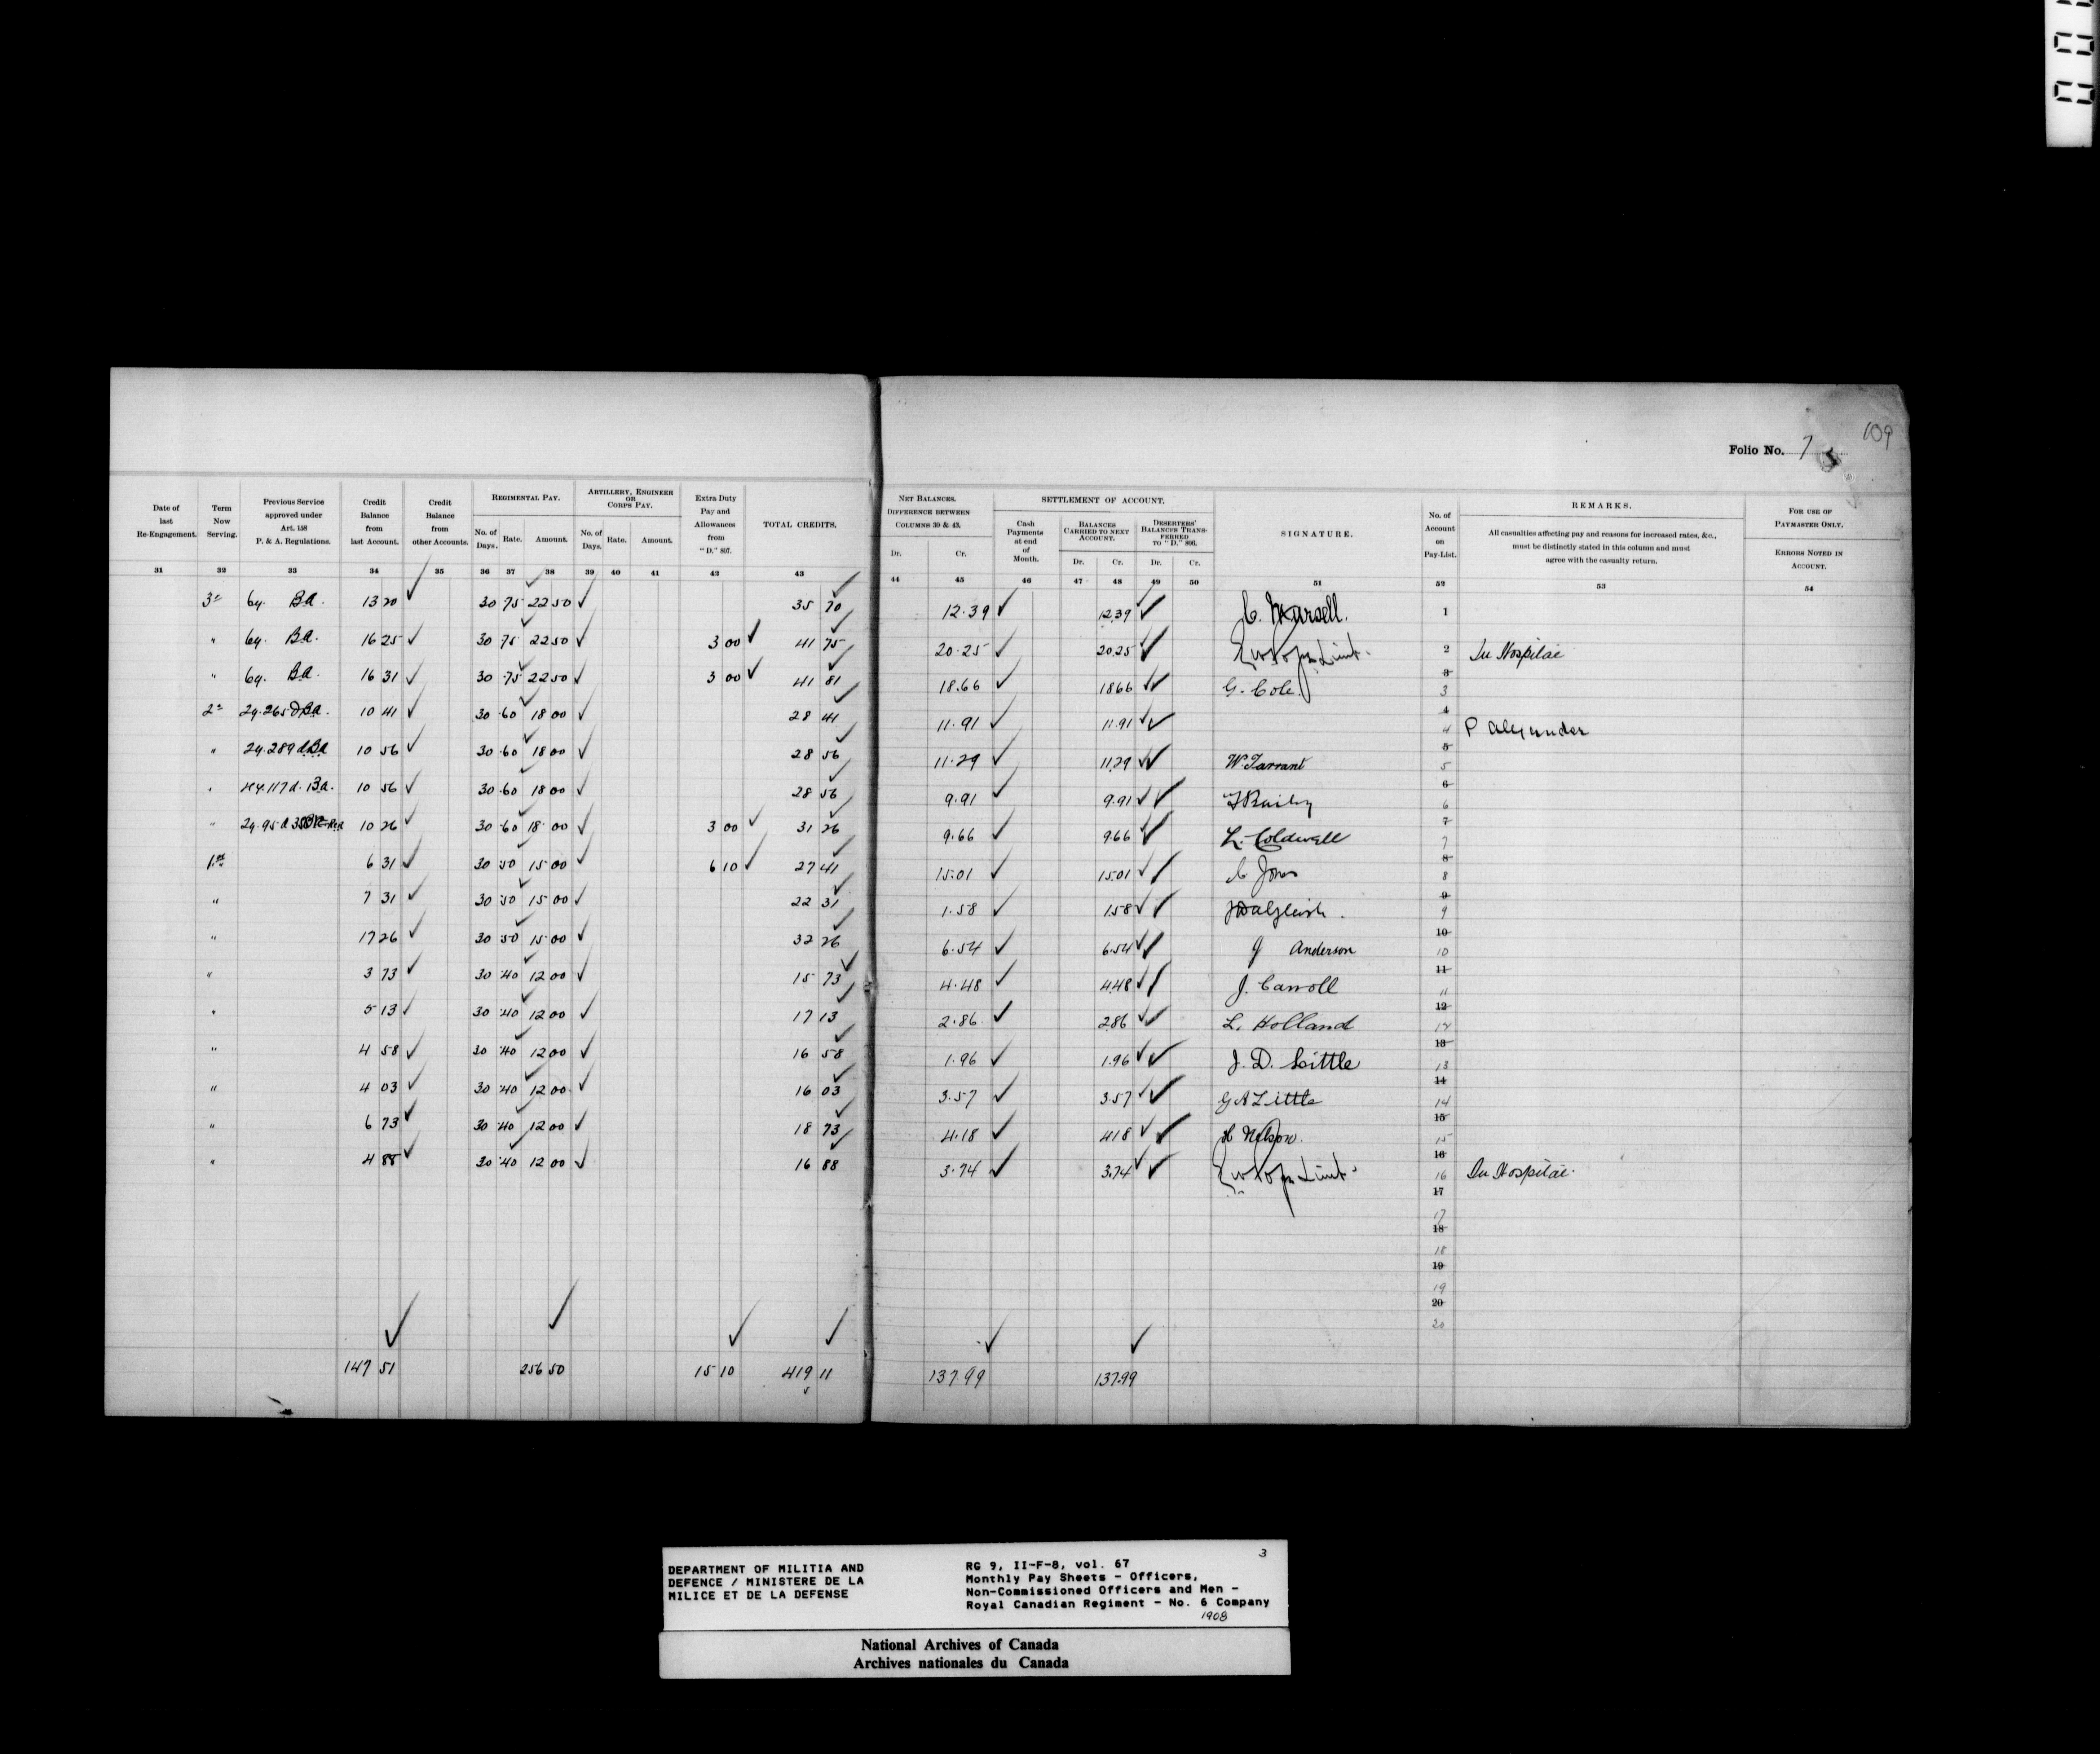 109
Folio No. 7
Date of last Re-Engagement.
Term Now Serving.
Previous Service approved under Art. 158 P. & A. Regulations.
Credit Balance from last Account.
Credit Balance from other Accounts.
REGIMENTAL PAY.
No. of Days. Rate. Amount.
ARTILLERY, ENGINEER OR CORPS PAY.
No. of Days. Rate. Amount.
Extra Duty Pay and Allowances from "D." 807.
TOTAL CREDITS.
NET BALANCES. DIFFERENCE BETWEEN COLUMNS 39 & 43.
Dr. Cr.
SETTLEMENT OF ACCOUNT.
Cash Payments at end of Month.
BALANCES CARRIED TO NEXT ACCOUNT.
Dr. Cr.
DESERTERS' BALANCES TRANSFERRED TO "D." 806.
Dr. Cr.
SIGNATURE.
No. of Account on Pay-List.
REMARKS.
All casualties affecting pay and reasons for increased rates, &c., must be distinctly stated in this column and must agree with the casualty return.
FOR USE OF PAYMASTER ONLY.
ERRORS NOTED IN ACCOUNT.
31 32 33 34 35 36 37 38 39 40 41 42 43 44 45 46 47 48 49 50 51 52 53 54
3rd 6y. Ba. 13 20 30 75 22 50 35 70 12.39 12.39 C. Marsell. 1
" 6y. Ba. 16 25 30 75 22 50 3 00 41 75 20.25 20.25 Lieut. 2 In Hospital
" 6y. Ba. 16 31 30 75 22 50 3 00 41 81 18.66 18.66 G. Cole. 3
2nd 2y.265d Ba. 10 41 30 .60 18 00 28 41 11.91 11.91 4 P Alexander
" 2y.289d Ba 10 56 30 .60 18 00 28 56 11.29 11.29 W. Tarrant 5
" 117d. Ba. 10 56 30 .60 18 00 28 56 9.91 9.91 Bailey 6
" 2y.95d 10 26 30 .60 18 00 3 00 31 26 9.66 9.66 L. Coldwell 7
1st 6 31 30 50 15 00 6 10 27 41 15.01 15.01 C Jones 8
" 7 31 30 50 15 00 22 31 1.58 1.58 J Dalgleish. 9
" 17 26 30 50 15 00 32 26 6.54 6.54 J Anderson 10
" 3 73 30 40 12 00 15 73 4.48 4.48 J. Carroll 11
" 5 13 30 40 12 00 17 13 2.86 2.86 L. Holland 12
" 4 58 30 40 12 00 16 58 1.96 1.96 J. D. Little 13
" 4 03 30 40 12 00 16 03 3.57 3.57 G A Little 14
" 6 73 30 40 12 00 18 73 4.18 4.18 H Nelson. 15
" 4 88 30 40 12 00 16 88 3.74 3.74 Lieut. 16 In Hospital.
17
18
19
20
147 51 256 50 15 10 419 11 137.99 137.99
DEPARTMENT OF MILITIA AND
DEFENCE / MINISTERE DE LA
MILICE ET DE LA DEFENSE
3
RG 9, II-F-8, vol. 67
Monthly Pay Sheets - Officers,
Non-Commissioned Officers and Men -
Royal Canadian Regiment - No. 6 Company
1908
National Archives of Canada
Archives nationales du Canada